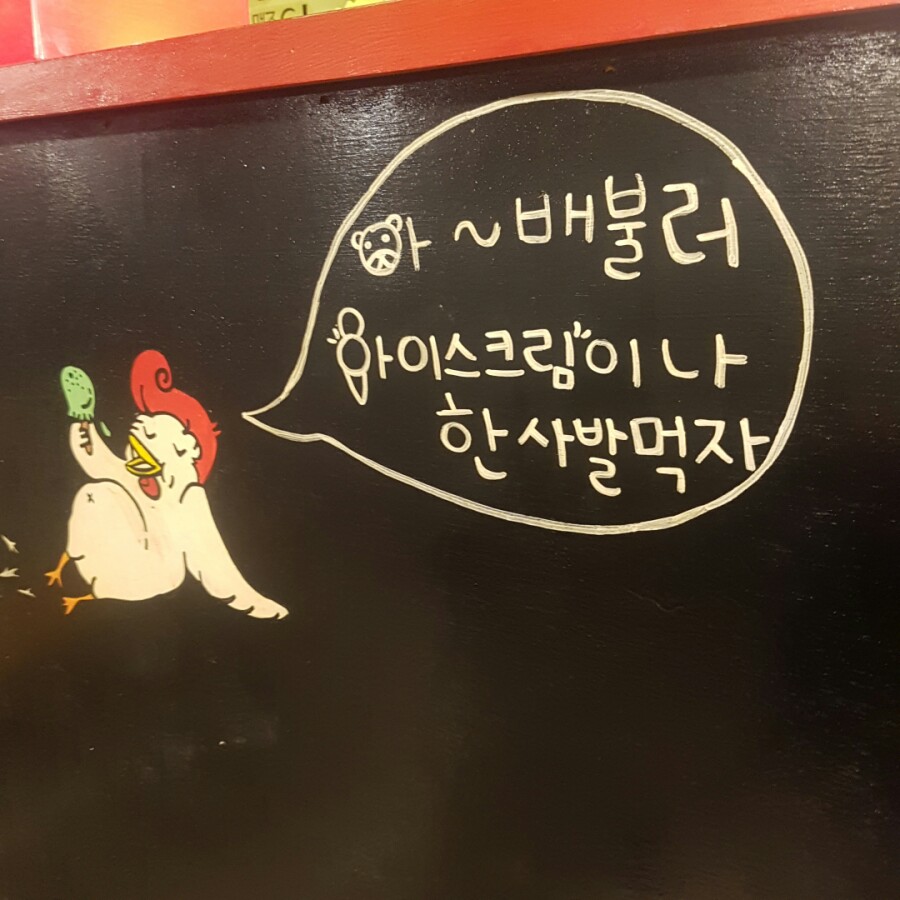 아~배불러
"아이스크림"이나
한사발먹자